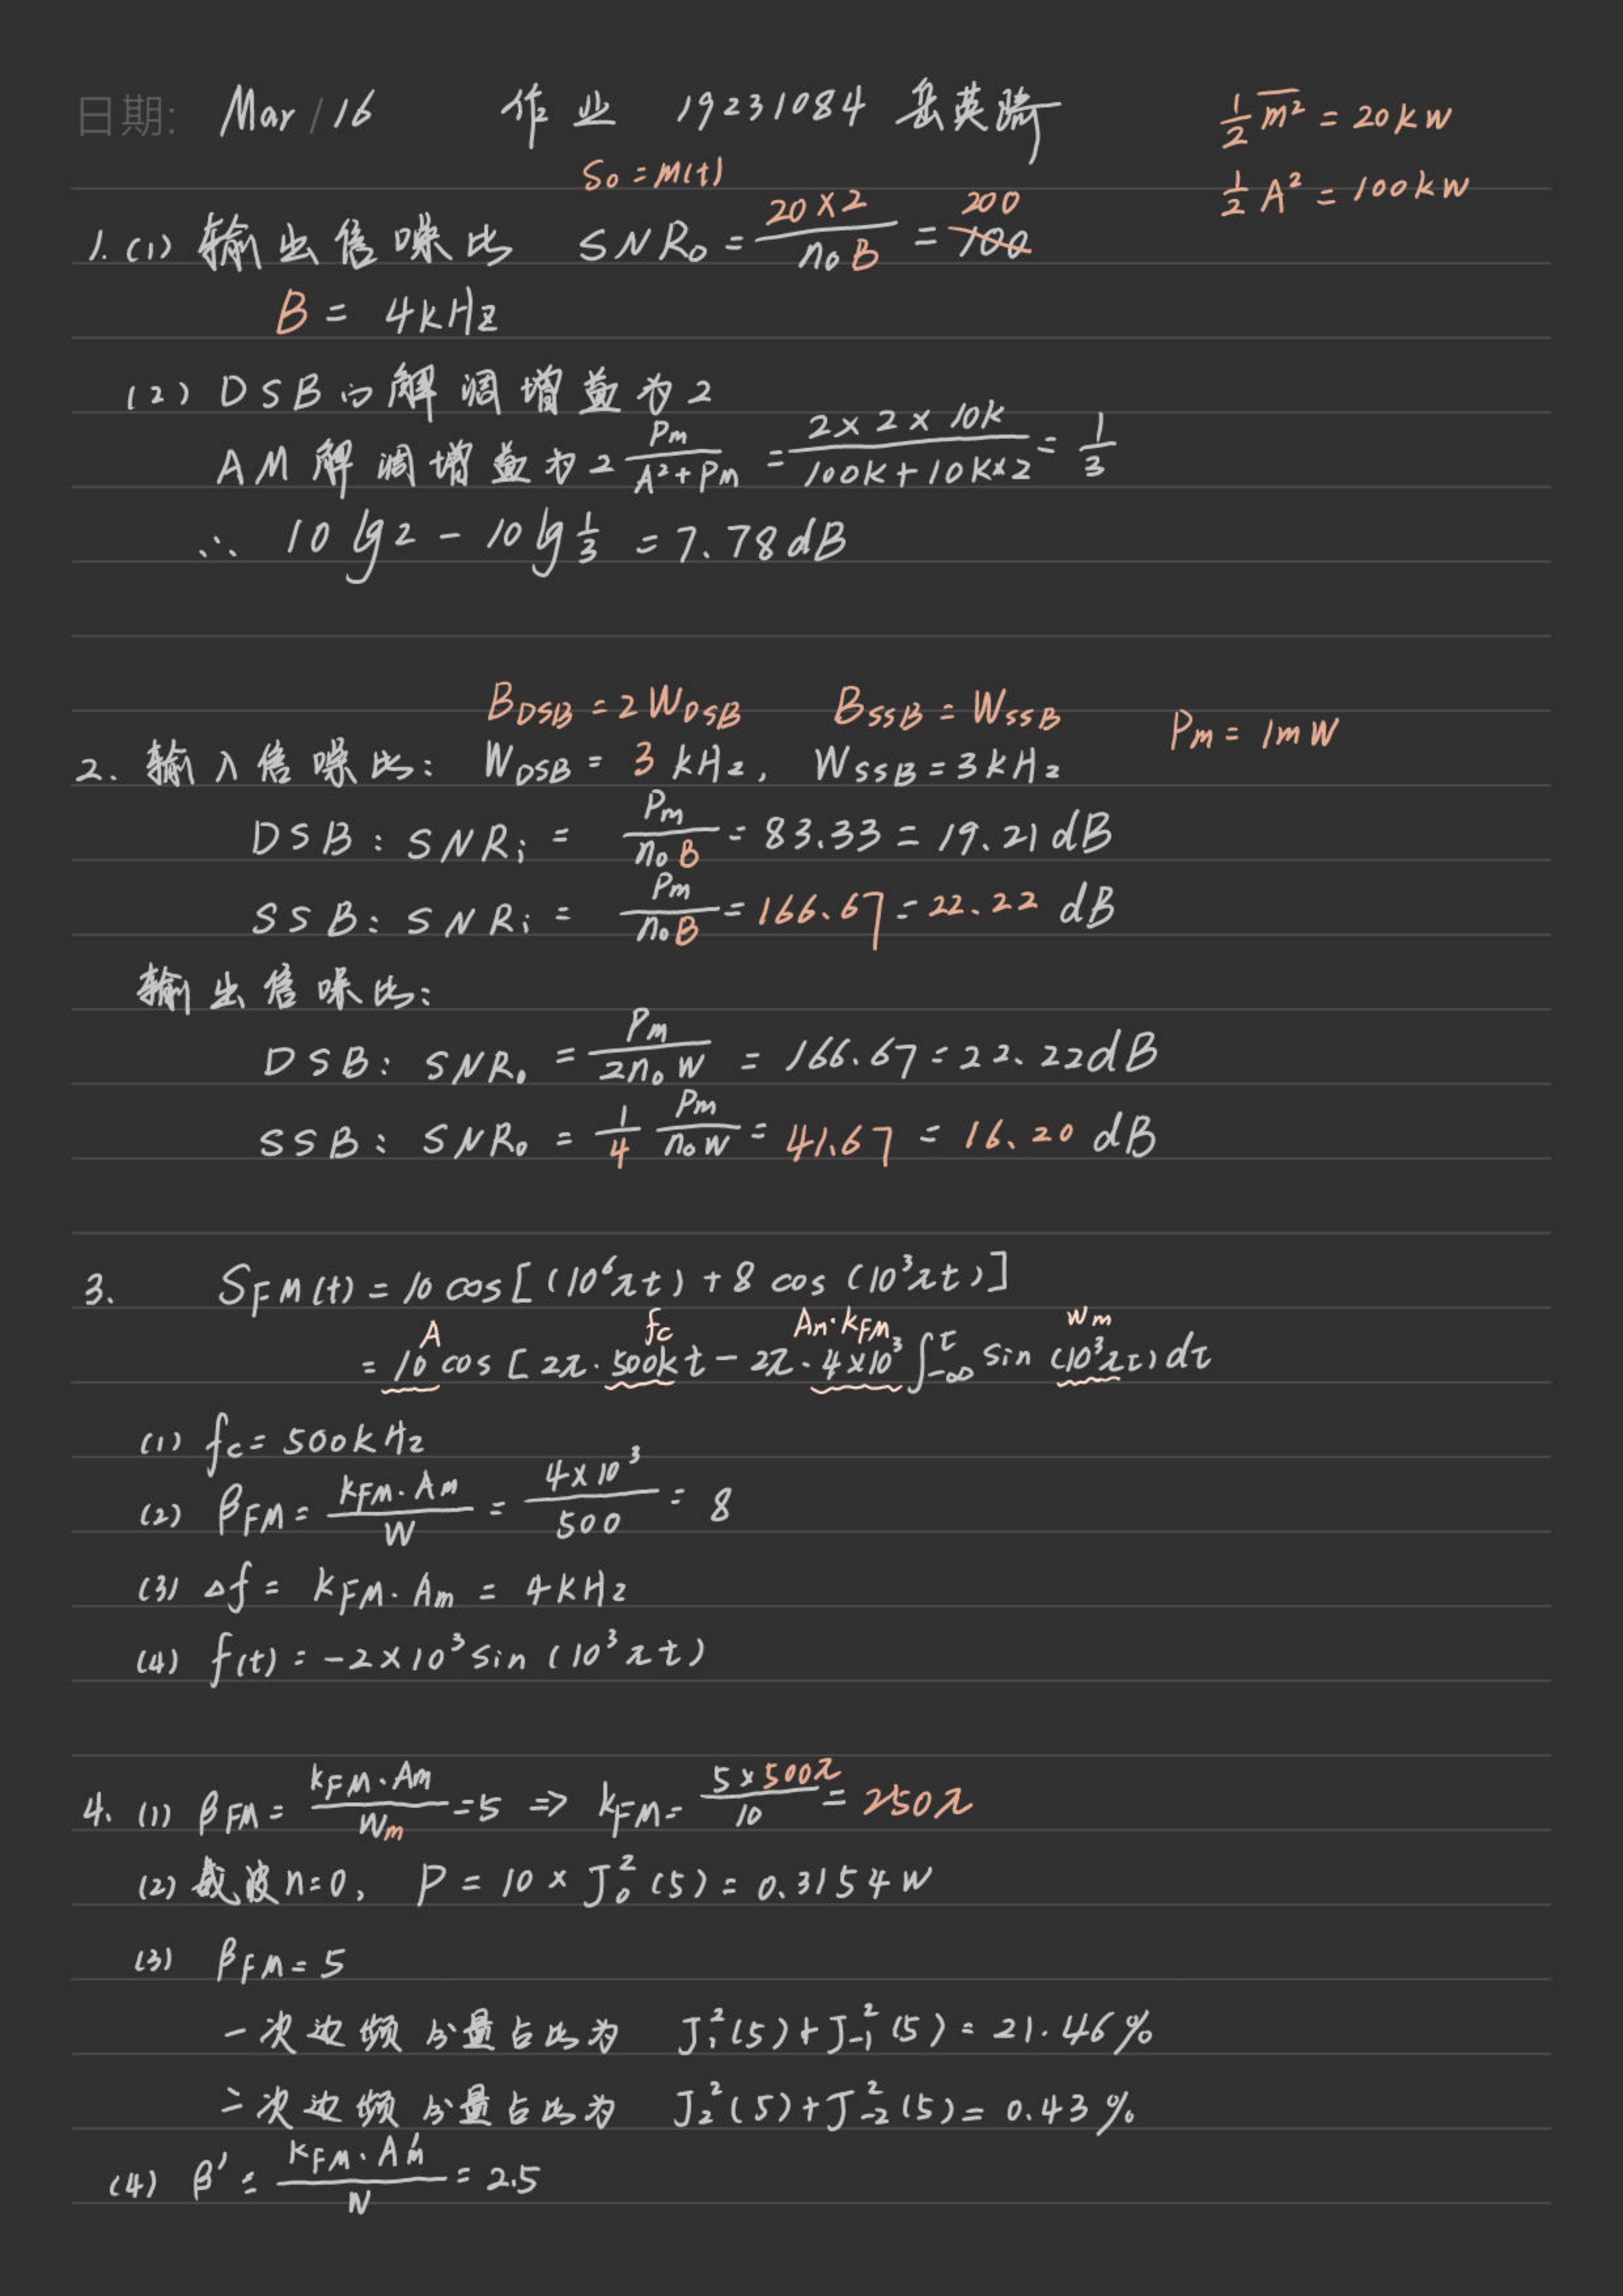 日期: Mar / 16 作业 19231084 岳英
½ m̅²̅ = 20kW
S₀ = m(t)
½ A² = 100kW
1. (1) 输出信噪比 SNR₀ = (20×2)/(n₀B) = 200 100
B = 4kHz
(2) DSB的解调增益为2
AM解调增益为 2 Pm/(A²+Pm) = (2×2×10k)/(100k+10k×2) = 1/3
∴ 10lg2 - 10lg⅓ = 7.78dB
B_DSB = 2W_DSB B_SSB = W_SSB Pm = 1mW
2. 输入信噪比: W_DSB = 3kHz, W_SSB = 3kHz
DSB: SNRi = Pm/(n₀B) = 83.33 = 19.21dB
SSB: SNRi = Pm/(n₀B) = 166.67 = 22.22 dB
输出信噪比:
DSB: SNR₀ = Pm/(2n₀W) = 166.67 = 22.22dB
SSB: SNR₀ = 1/4 Pm/(n₀W) = 41.67 = 16.20 dB
3. S_FM(t) = 10cos[(10⁶πt) + 8cos(10³πt)]
A fc Am·k_FM wm
= 10cos[2π·500kt - 2π·4×10³ ∫_{-∞}^{t} sin(10³πτ)dτ
(1) fc = 500kHz
(2) β_FM = (k_FM·Am)/W = (4×10³)/500 = 8
(3) △f = k_FM·Am = 4kHz
(4) f(t) = -2×10³sin(10³πt)
4. (1) β_FM = (k_FM·Am)/Wm = 5 ⇒ k_FM = (5×500π)/10 = 250π
(2) 载波n=0, P = 10×J₀²(5) = 0.3154W
(3) β_FM = 5
一次边频分量占比为 J₁²(5)+J₋₁²(5) = 21.46%
二次边频分量占比为 J₂²(5)+J₋₂²(5) = 0.43%
(4) β' = (k_FM·Am')/W = 2.5